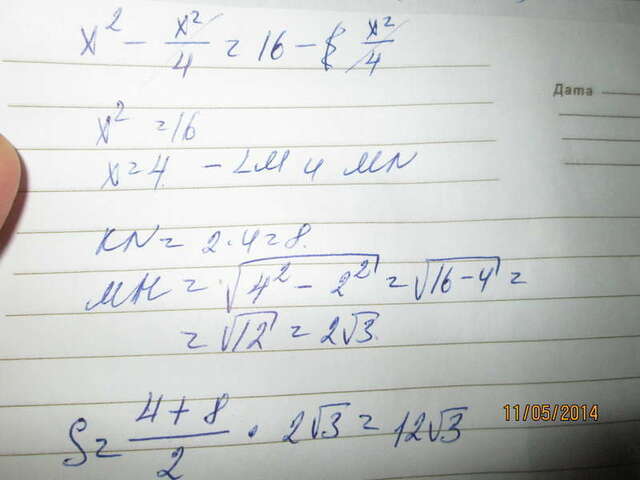 x² - x²/4 = 16 - x²/4
Дата
x² = 16
x = 4 - LM и MN
KN = 2·4 = 8.
MH = √(4² - 2²) = √(16 - 4) =
= √12 = 2√3.
S = (4 + 8)/2 · 2√3 = 12√3
11/05/2014